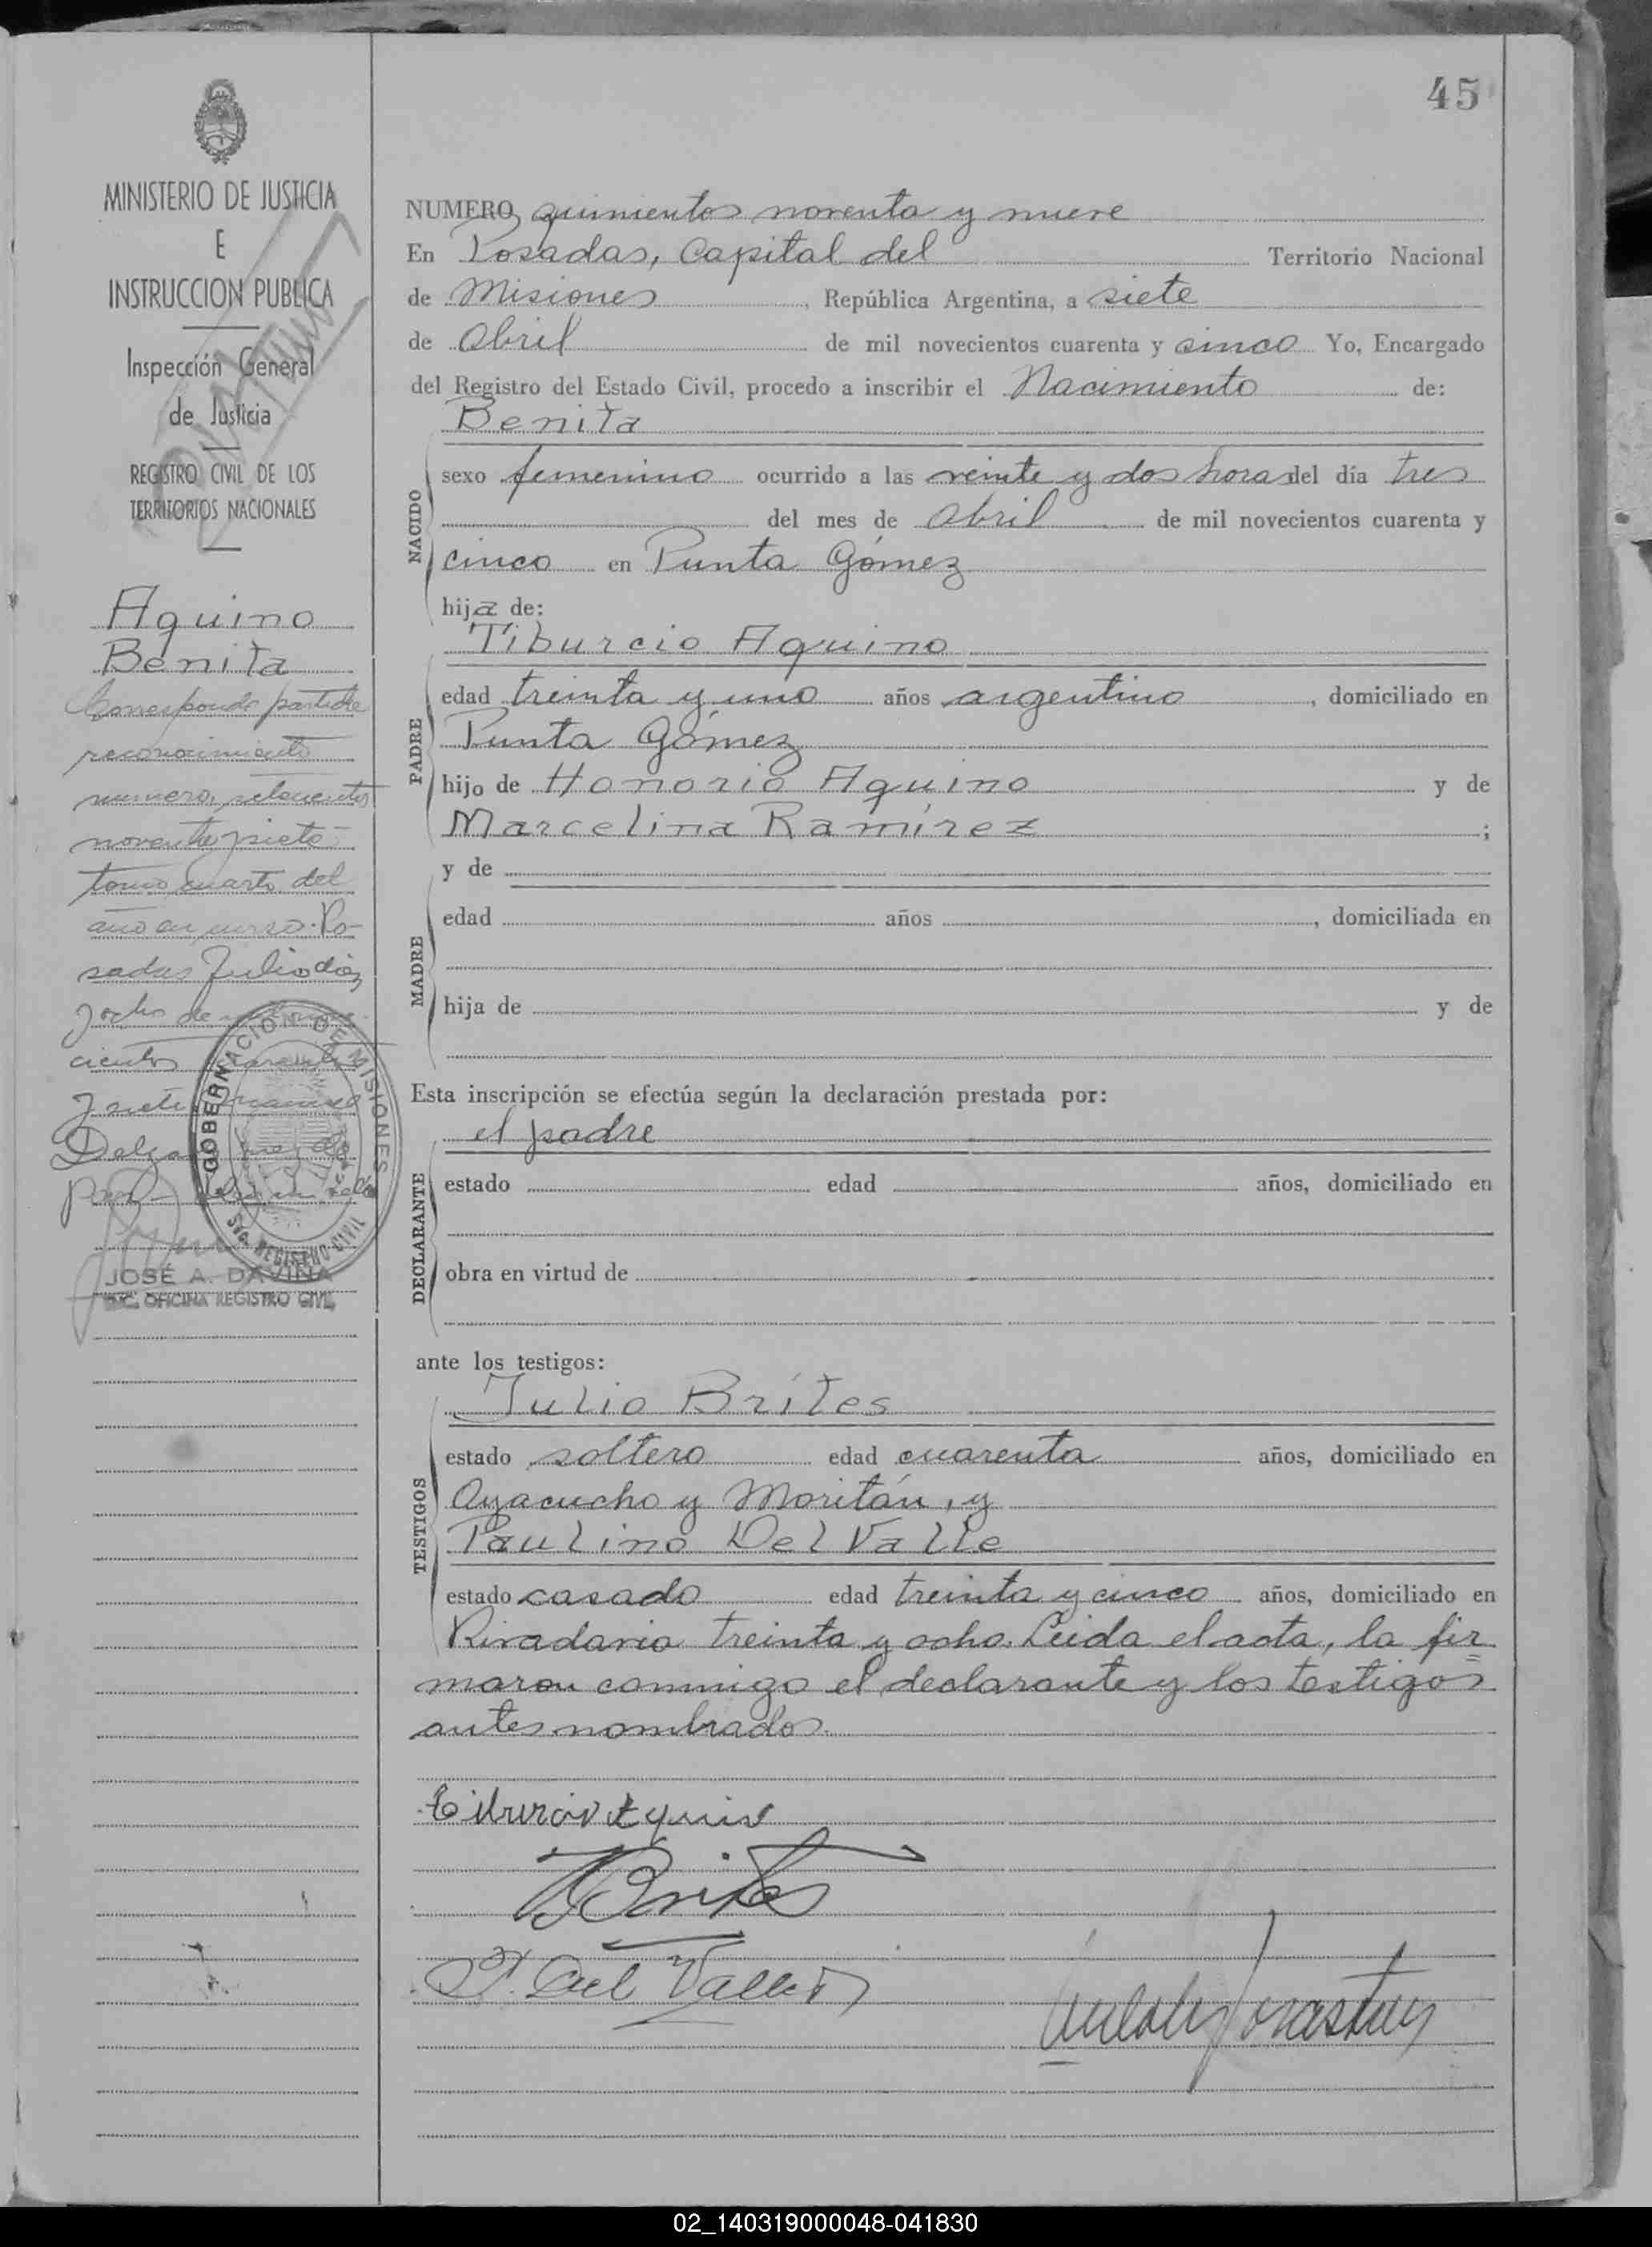 45
MINISTERIO DE JUSTICIA
E
INSTRUCCION PUBLICA
Inspección General
de Justicia
REGISTRO CIVIL DE LOS
TERRITORIOS NACIONALES
Aquino
Benita
Corresponde partida
reconocimiento
número setecientos
noventa y siete
tomo cuarto del
año en curso. Po-
sadas Julio diez
y ocho de mil nove-
cientos cuarenta
y siete
GOBERNACION DE MISIONES
REGISTRO CIVIL
JOSÉ A. DAVIÑA
ENC. OFICINA REGISTRO CIVIL
NUMERO quinientos noventa y nueve
En Posadas, Capital del Territorio Nacional
de Misiones, República Argentina, a siete
de Abril de mil novecientos cuarenta y cinco Yo, Encargado
del Registro del Estado Civil, procedo a inscribir el Nacimiento de:
Benita
NACIDO
sexo femenino ocurrido a las veinte y dos horas del día tres
del mes de Abril de mil novecientos cuarenta y
cinco en Punta Gómez
hija de:
Tiburcio Aquino
PADRE
edad treinta y uno años argentino, domiciliado en
Punta Gómez
hijo de Honorio Aquino y de
Marcelina Ramírez ;
y de
MADRE
edad años , domiciliada en
hija de y de
Esta inscripción se efectúa según la declaración prestada por:
el padre
DECLARANTE
estado edad años, domiciliado en
obra en virtud de
ante los testigos:
Julio Brítes
TESTIGOS
estado soltero edad cuarenta años, domiciliado en
Ayacucho y Moritán, y
Paulino Del Valle
estado casado edad treinta y cinco años, domiciliado en
Rivadavia treinta y ocho. Leida el acta, la fir=
maron conmigo el declarante y los testigos
antes nombrados.
Tiburcio Aquino
J Brites
P. Del Valle
02_140319000048-041830